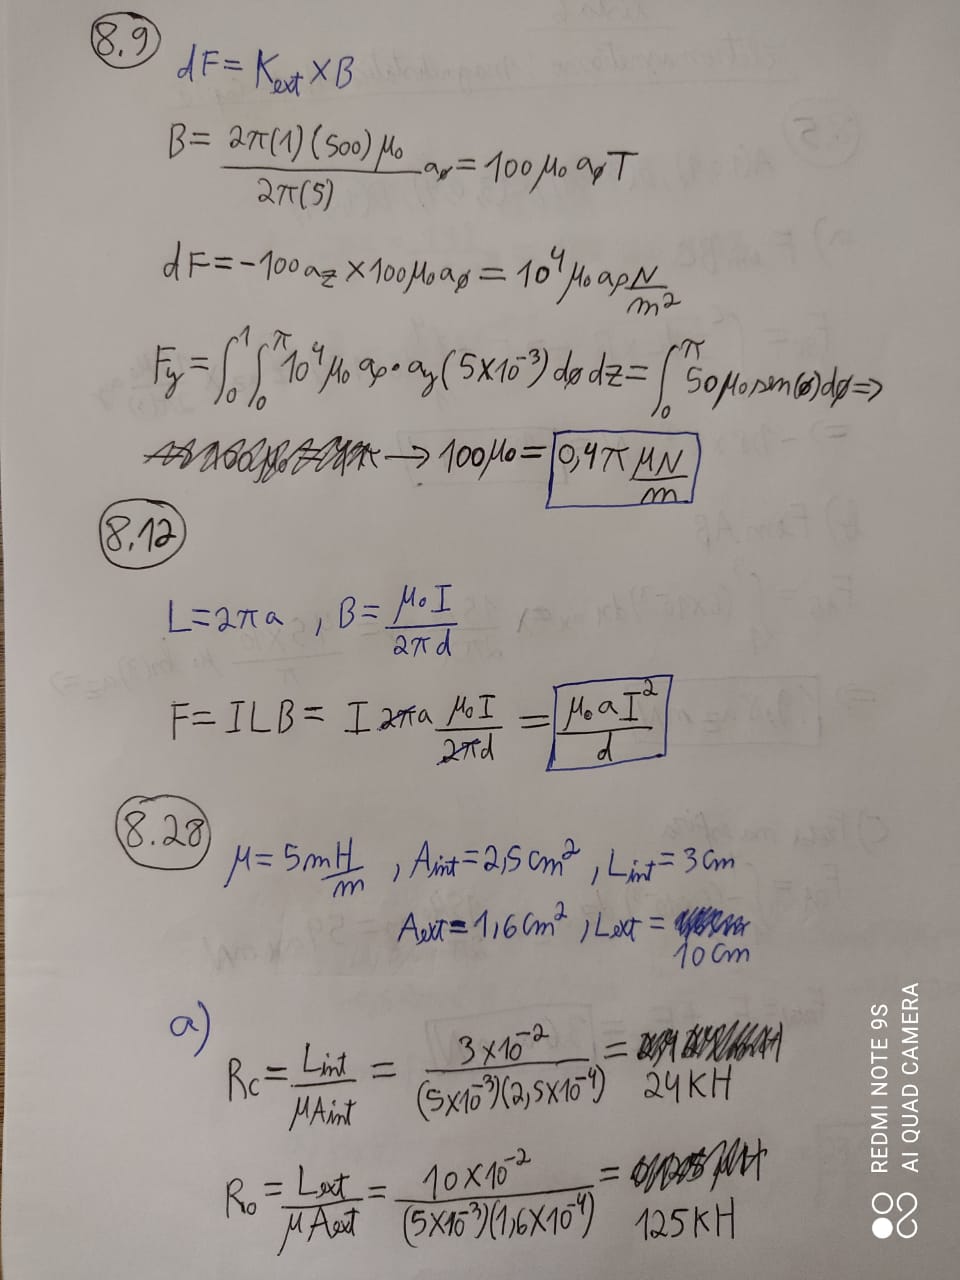 8.9
dF = K_ext × B
B = 2π(1)(500)μ₀ / 2π(5) aø = 100μ₀ aø T
dF = -100 a_z × 100μ₀ aø = 10⁴ μ₀ aρ N/m²
F_y = ∫₀¹ ∫₀^π 10⁴ μ₀ aρ • a_y (5×10⁻³) dø dz = ∫₀^π 50μ₀ sen(ø) dø ⇒
→ 100μ₀ = 0,4π μN/m
8.12
L = 2πa , B = μ₀I / 2πd
F = ILB = I 2πa μ₀I / 2πd = μ₀ a I² / d
8.28
μ = 5mH/m , A_int = 2,5cm² , L_int = 3cm
A_ext = 1,6cm² , L_ext =
10cm
a)
R_C = L_int / μA_int = 3×10⁻² / (5×10⁻³)(2,5×10⁻⁴) = 24KH
R_o = L_ext / μA_ext = 10×10⁻² / (5×10⁻³)(1,6×10⁻⁴) = 125KH
REDMI NOTE 9S
AI QUAD CAMERA